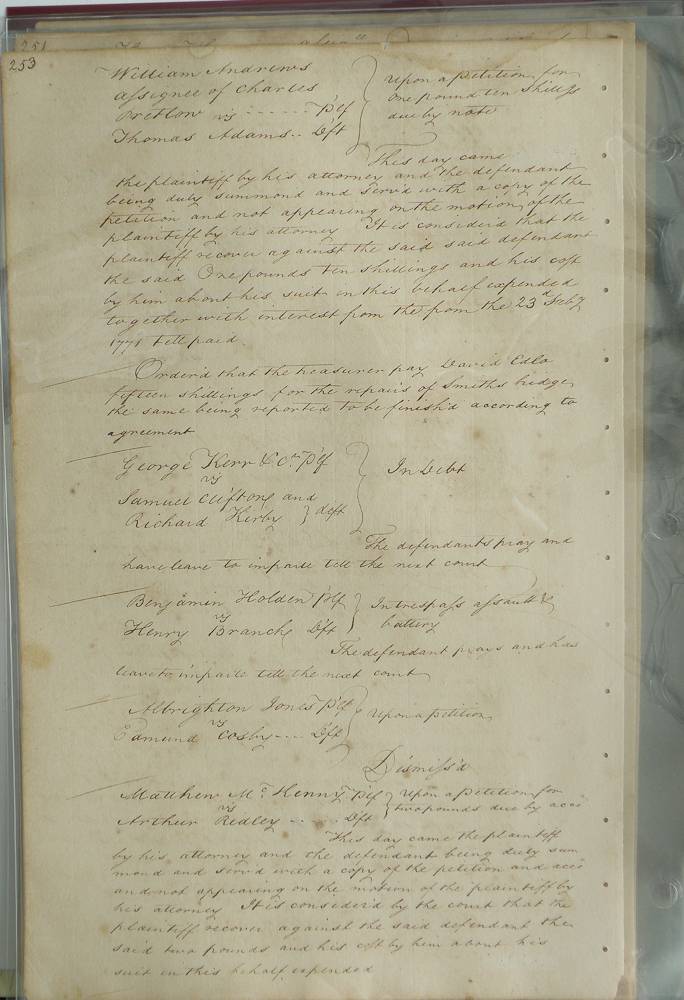 251
253
William Andrews
assignee of Charles
Pretlow vs ------ Plf
Thomas Adams.. Dft
Upon a petition for
One pound ten Shillgs
due by note
This day came
the plaintiff by his attorney and the defendant
being duly summond and serv'd with a copy of the
petition and not appearing on the motion of the
plaintiff by his attorney It is consider'd that the
plaintiff recover against the said said defendant
the said One pounds ten shillings and his cost
by him about his suit in this behalf expended
together with interest from the from the 23d Feby
1771 till paid.
Order'd that the treasurer pay David Edlo
fifteen shillings for the repairs of Smiths bridge
the same being reported to be finish'd according to
agreement
George Kerr & Co. Plf
vs
Samuel Cliftong and
Richard Kirby } deft
In Debt
The defendants pray and
have leave to imparle till the next court
Benjamin Holden Plf
vs
Henry Branch Dft
In trespass assault &
battery
The defendant prays and has
leave to imparle till the next court
Albrighton Jones Plf
vs
Edmund Cosby --- Dft
Upon a petition
Dismiss'd
Matthew Mc Kenny Plf
vs
Arthur Ridley ---- Dft
Upon a petition for
two pounds due by acco
This day came the plaintiff
by his attorney and the defendant being duly sum
mond and serv'd with a copy of the petition and acco
and not appearing on the motion of the plaintiff by
his attorney It is consider'd by the court that the
plaintiff recover against the said defendant the
said two pounds and his cost by him about his
suit in this behalf expended